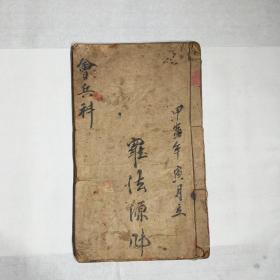 會兵科
甲寅年寅月立
羅法源